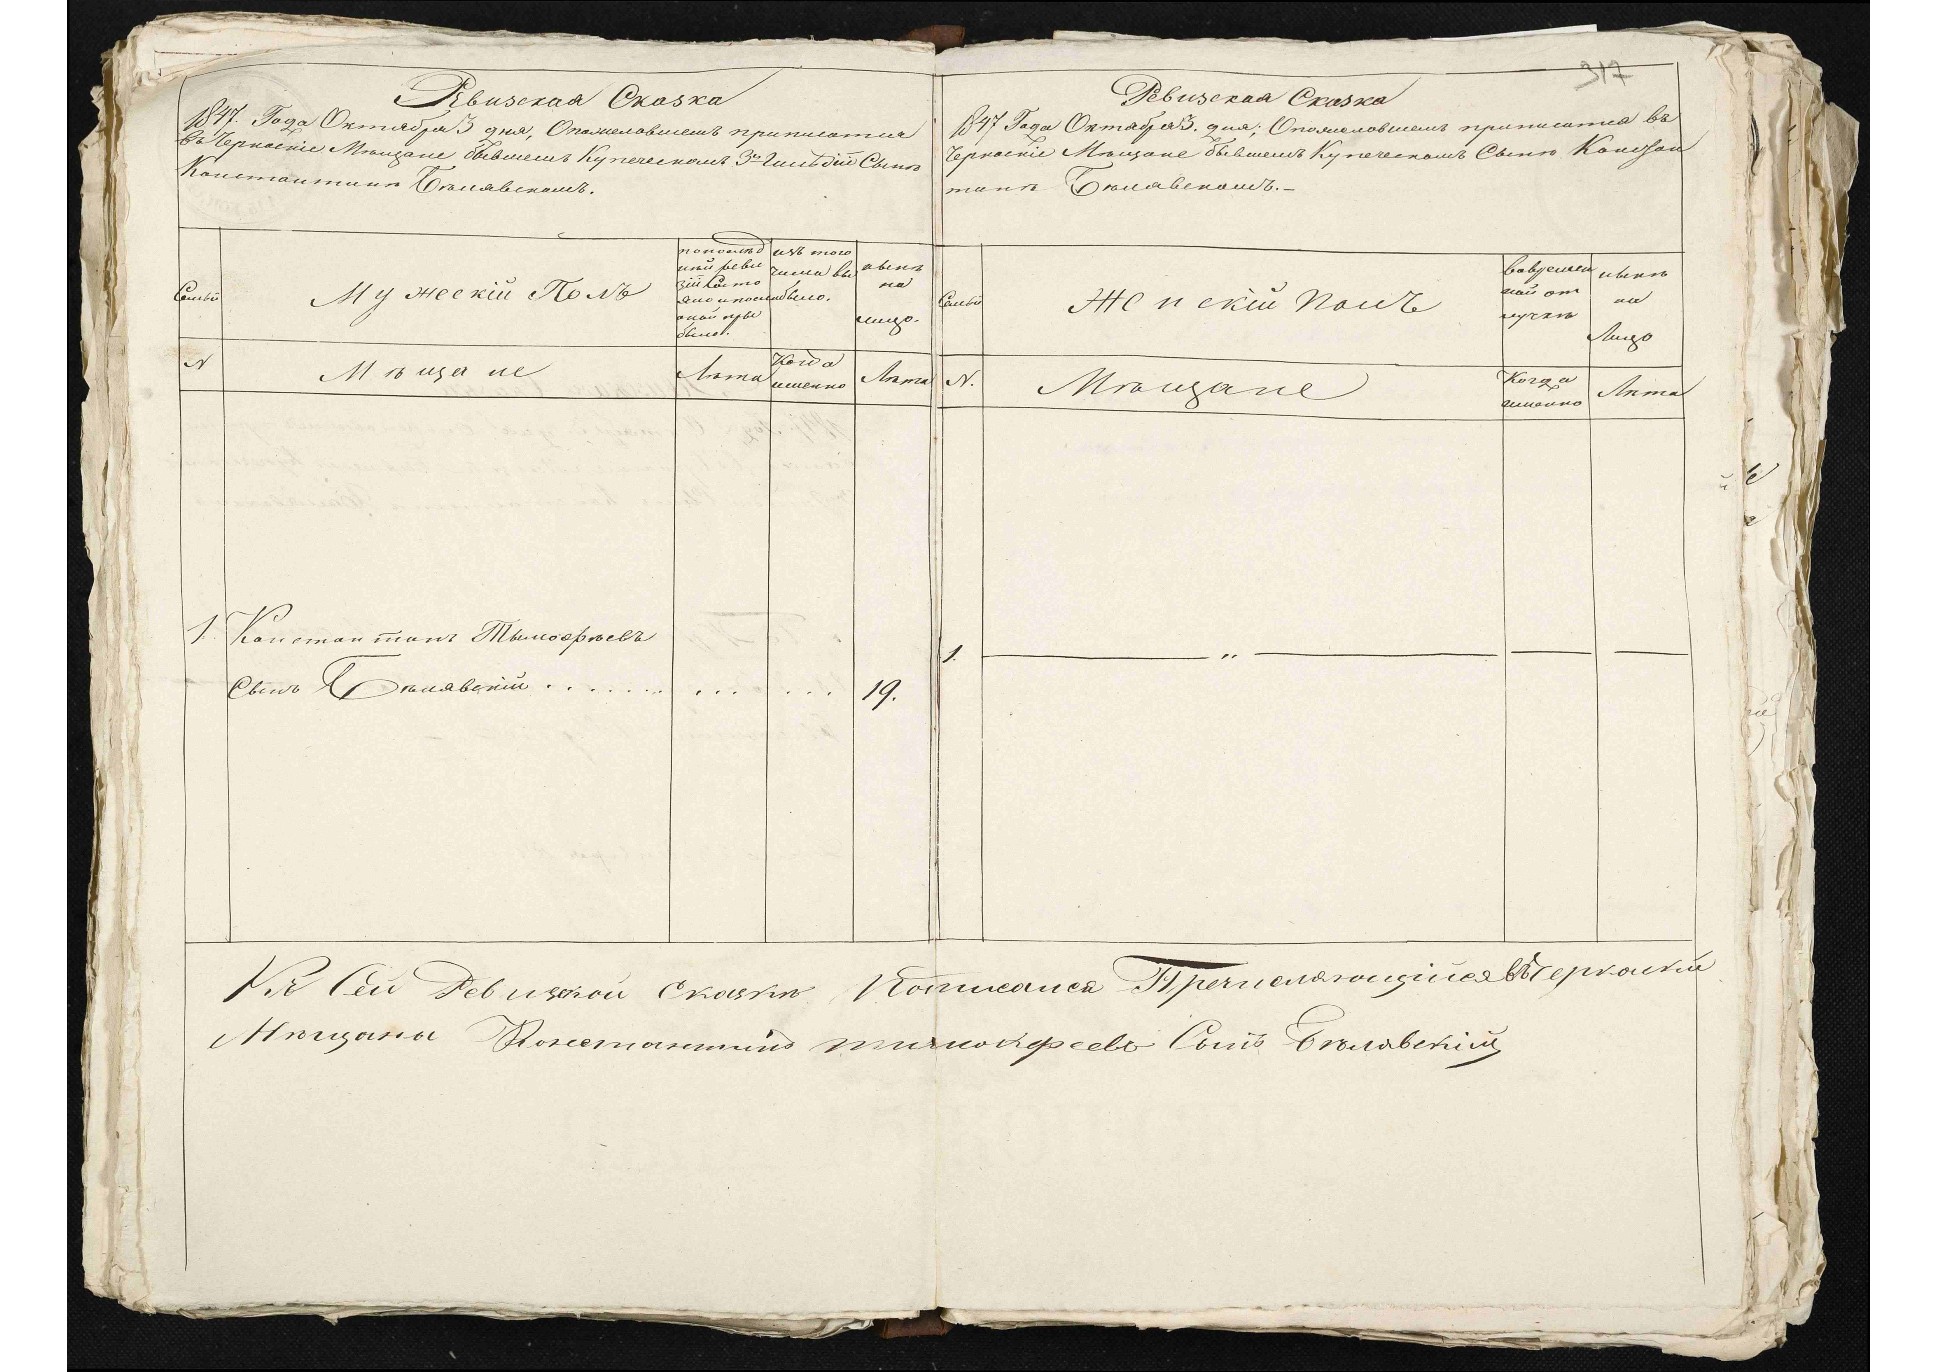 Ревизская Сказка
1847. Года Октября 3 дня, Опожеловшемъ приписатся
въ Черкаскіе Мѣщане бывшемъ Купеческомъ 3й Гильдіи Сынѣ
Константинѣ Бѣлявскомъ.
Семьи
Мужескій Полъ
попослѣд
ней реви
зіи состо
яло и послѣ
оной при
было.
изъ того
числа вы
было.
нынѣ
на
лицо.
N
Мѣщане
Лѣта
Когда
именно
Лѣта
1. Константинъ Тымофѣевъ
Сынъ Бѣлявскій . . . . . . . . . . . . . 19.
317
Ревизская Сказка
1847 Года Октября 3. дня; Опожеловшемъ приписатся въ
Черкаскіе Мѣщане бывшемъ Купеческомъ Сынѣ Констан
тинѣ Бѣлявскомъ.–
Семьи
Женскій полъ
вовремен
ной от
лучкѣ
нынѣ
на
Лицо
N.
Мѣщане
Когда
именно
Лѣта
1. — " —
Къ Сей Ревизкой сказкѣ Потписался Пречисляющійся въ Черкаскіи
Мѣщаны Константинъ тимофеевъ Сынъ Бѣлявскій